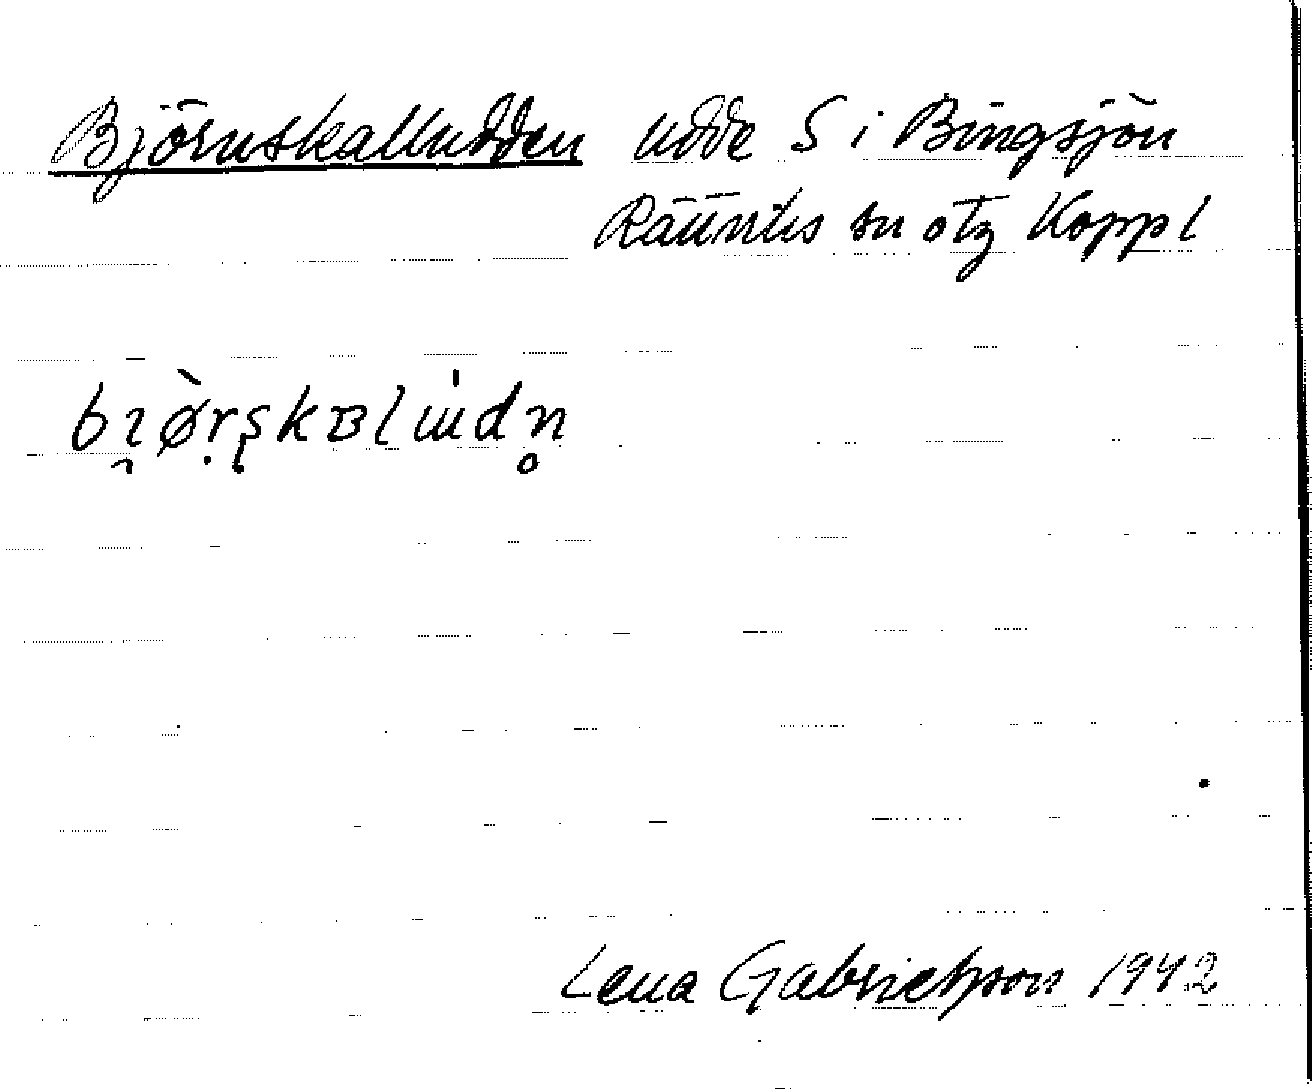 Björnskalludden udde S i Bingsjön
Rättvtks sn otz Koppl
Lena Gabrielsson 1942